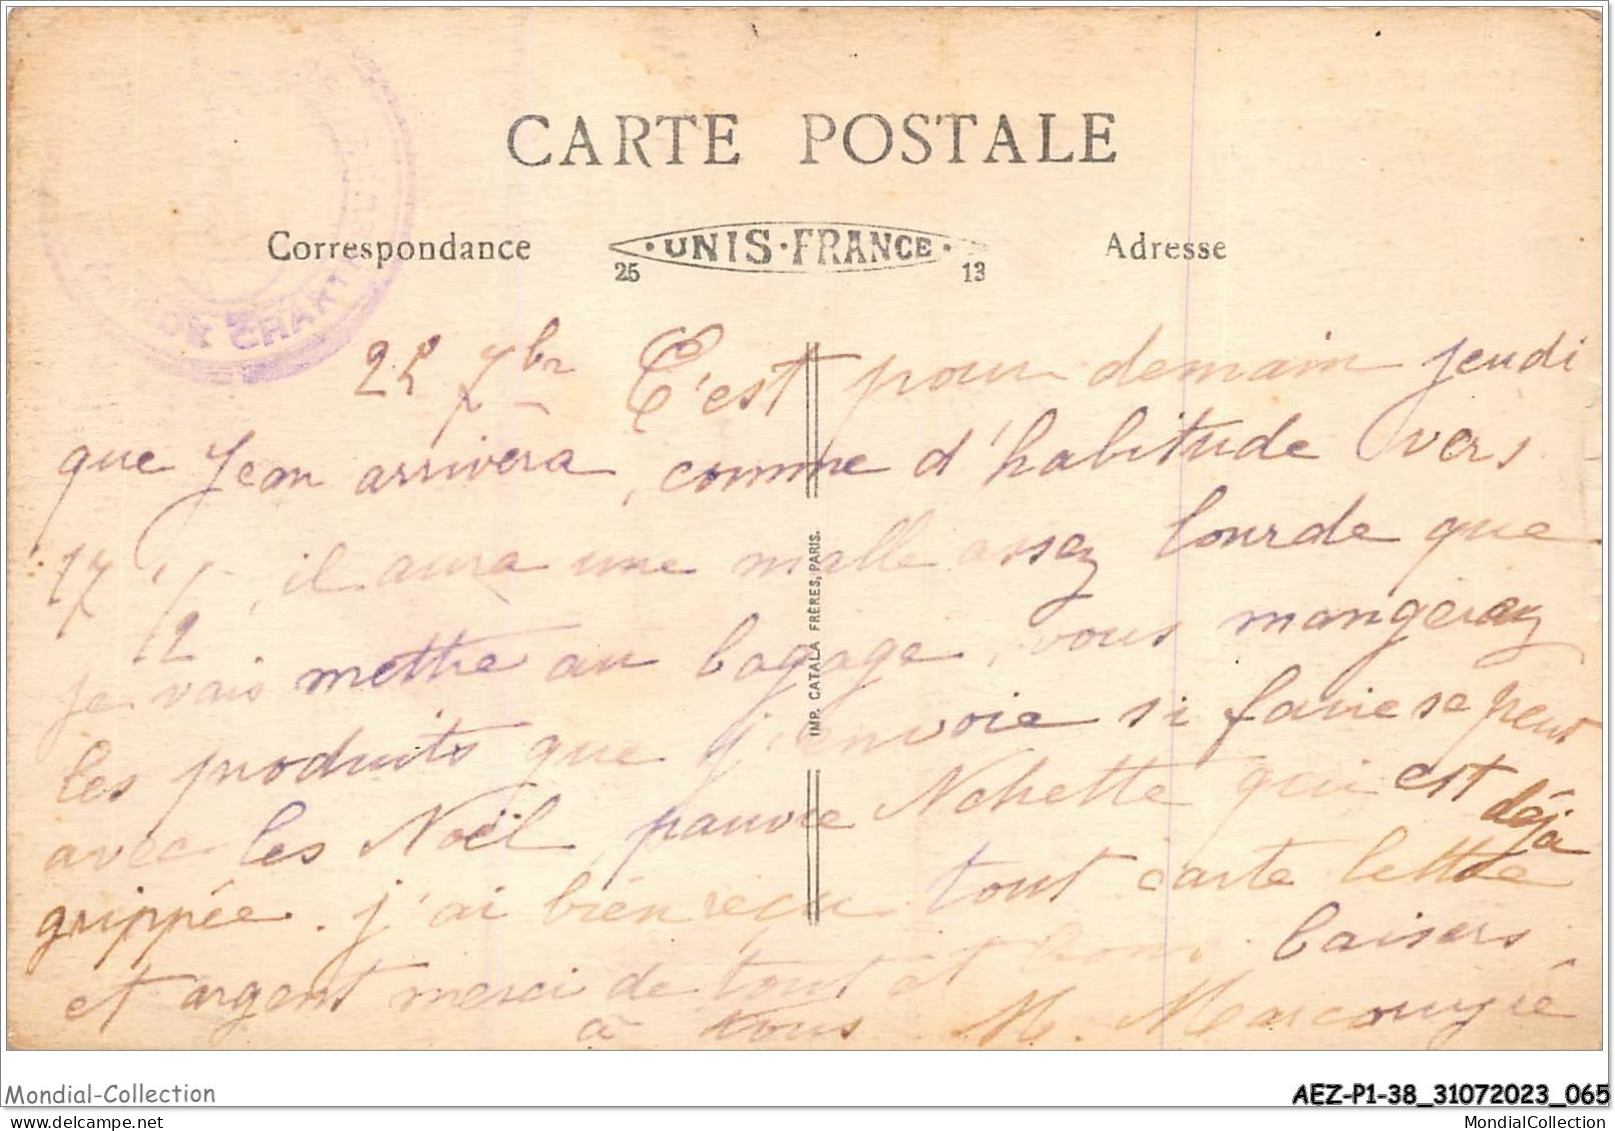 CARTE POSTALE
Correspondance
UNIS·FRANCE
25 13
Adresse
CHARTREUSE
22 7bre C'est pour demain jeudi
que Jean arrivera, comme d'habitude vers
17 1/2, il aura une malle assez lourde que
je vais mettre au bagage, vous mangerez
les produits que j'envoie si faire se peut
avec les Noël, pauvre Nohette qui est déjà
grippée. j'ai bien reçu tout carte lettre
et argent merci de tout et bons baisers
à tous M.
IMP. CATALA FRÈRES, PARIS.
Mondial-Collection
AEZ-P1-38_31072023_065
www.delcampe.net
MondialCollection